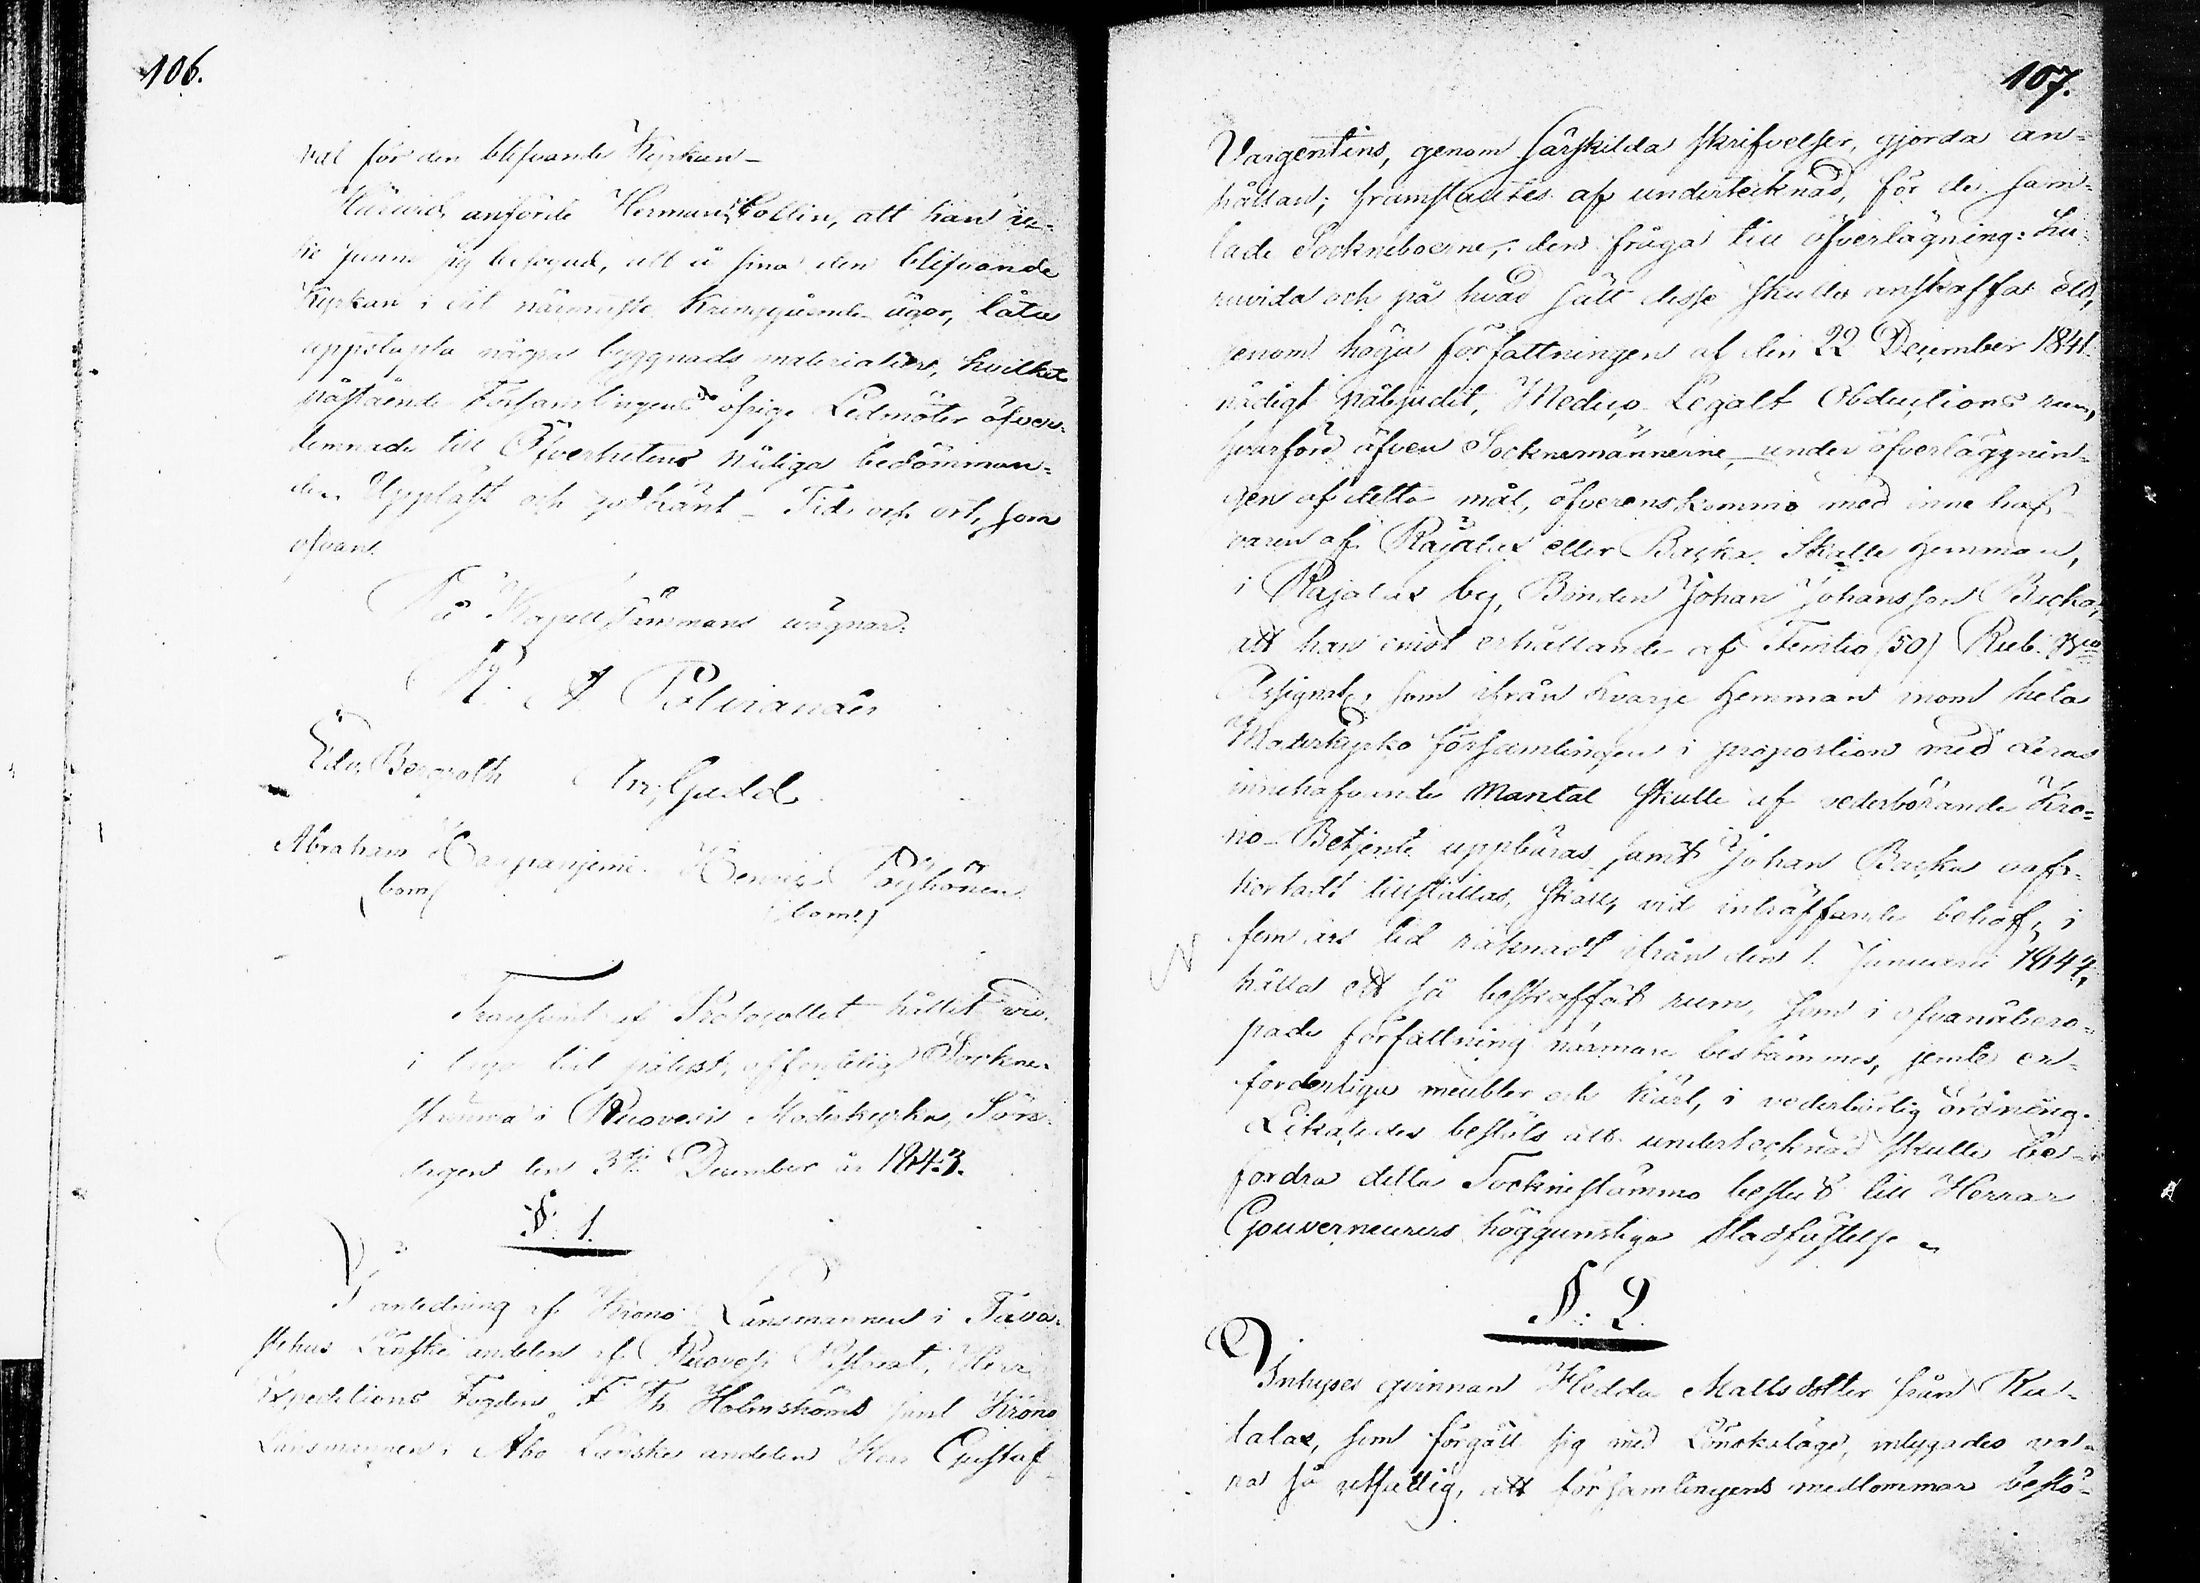 106.
val för den blifvande Kyrkan_
Härvid anförde Herman Collin, att han
sig befogad, att å sina den blifvande
Kyrkan i närmaste kringgående ägor, låta
upptagta några byggnads materialier, hvilket
påstående Församlingens öfrige Ledmöter öfver-
lemnade till Öfverhetens nådiga bedömman-
de. Uppläst och godkänt _ Tid och ort, som
ofvan.
På Kapell stämmans vägnar:
Edv. Bergroth Gadd
Abraham Haapaniemi Henric Pöyhönen
(bom) (bom)
Transumt af Protocollet hållet vid
i laga tid pålyst, offentelig Sockne-
stämma i Ruovesi Moderkyrka, Sön-
dagen den 3dje December år 1843.
§. 1.
I anledning af Krono Länsmannen i Tava-
stehus Länska andelen af Ruovesi District, Herr
Expeditions Fogden F Th Holmströms samt Krono
Länsmannen i Åbo Länska andelen Herr Gustaf
107.
Vargentins, genom särskilda skrifvelser, gjorda an-
hållan; framstältes af undertecknad, för de sam-
lade Sockneboerne, den fråga till öfverlägning: hu-
ruvida och på hvad sätt desse skulle anskaffa ett,
genom höga författningen af den 22 December 1841
nådigt påbjudit, Medico Legalt Obductions rum,
hvarföre äfven Socknemännerne, under öfverläggnin-
gen af detta mål, öfverenskommo med inne haf-
varen af Rajalax eller Backa Skatte hemman,
i Rajalax by, Bonden Johan Johansson Backa,
att han emot erhållande af Femtio (50) Rub. Bco
Assignat., som ifrån hvarje hemman inom hela
Moderkyrko församlingen i proportion med deras
innehafvande Mantal skulle af vederbörande Kro-
no_Betjente uppbäras samt Johan Backa oaf-
kortadt tillställas, skall, vid inträffande behof, i
fem års tid räknadt ifrån den 1. Januarii 1844,
hålla ett så beskaffat rum, som i ofvanåbero-
pade författning närmare bestämmes, jemte er-
forderliga meubler och kärl, i vederbörlig ordning.
Likaledes beslöts att undertecknad skulle be-
fordra detta Socknestämmo beslut till Herrar
Gouverneurers höggunstiga stadfästelse_
§. 2.
Inhyses qvinnan Hedda Mattsdotter från Ru-
talax, som förgått sig med Lönskaläge, intygades va-
ra så utfattig, att församlingens medlemmar beslö-